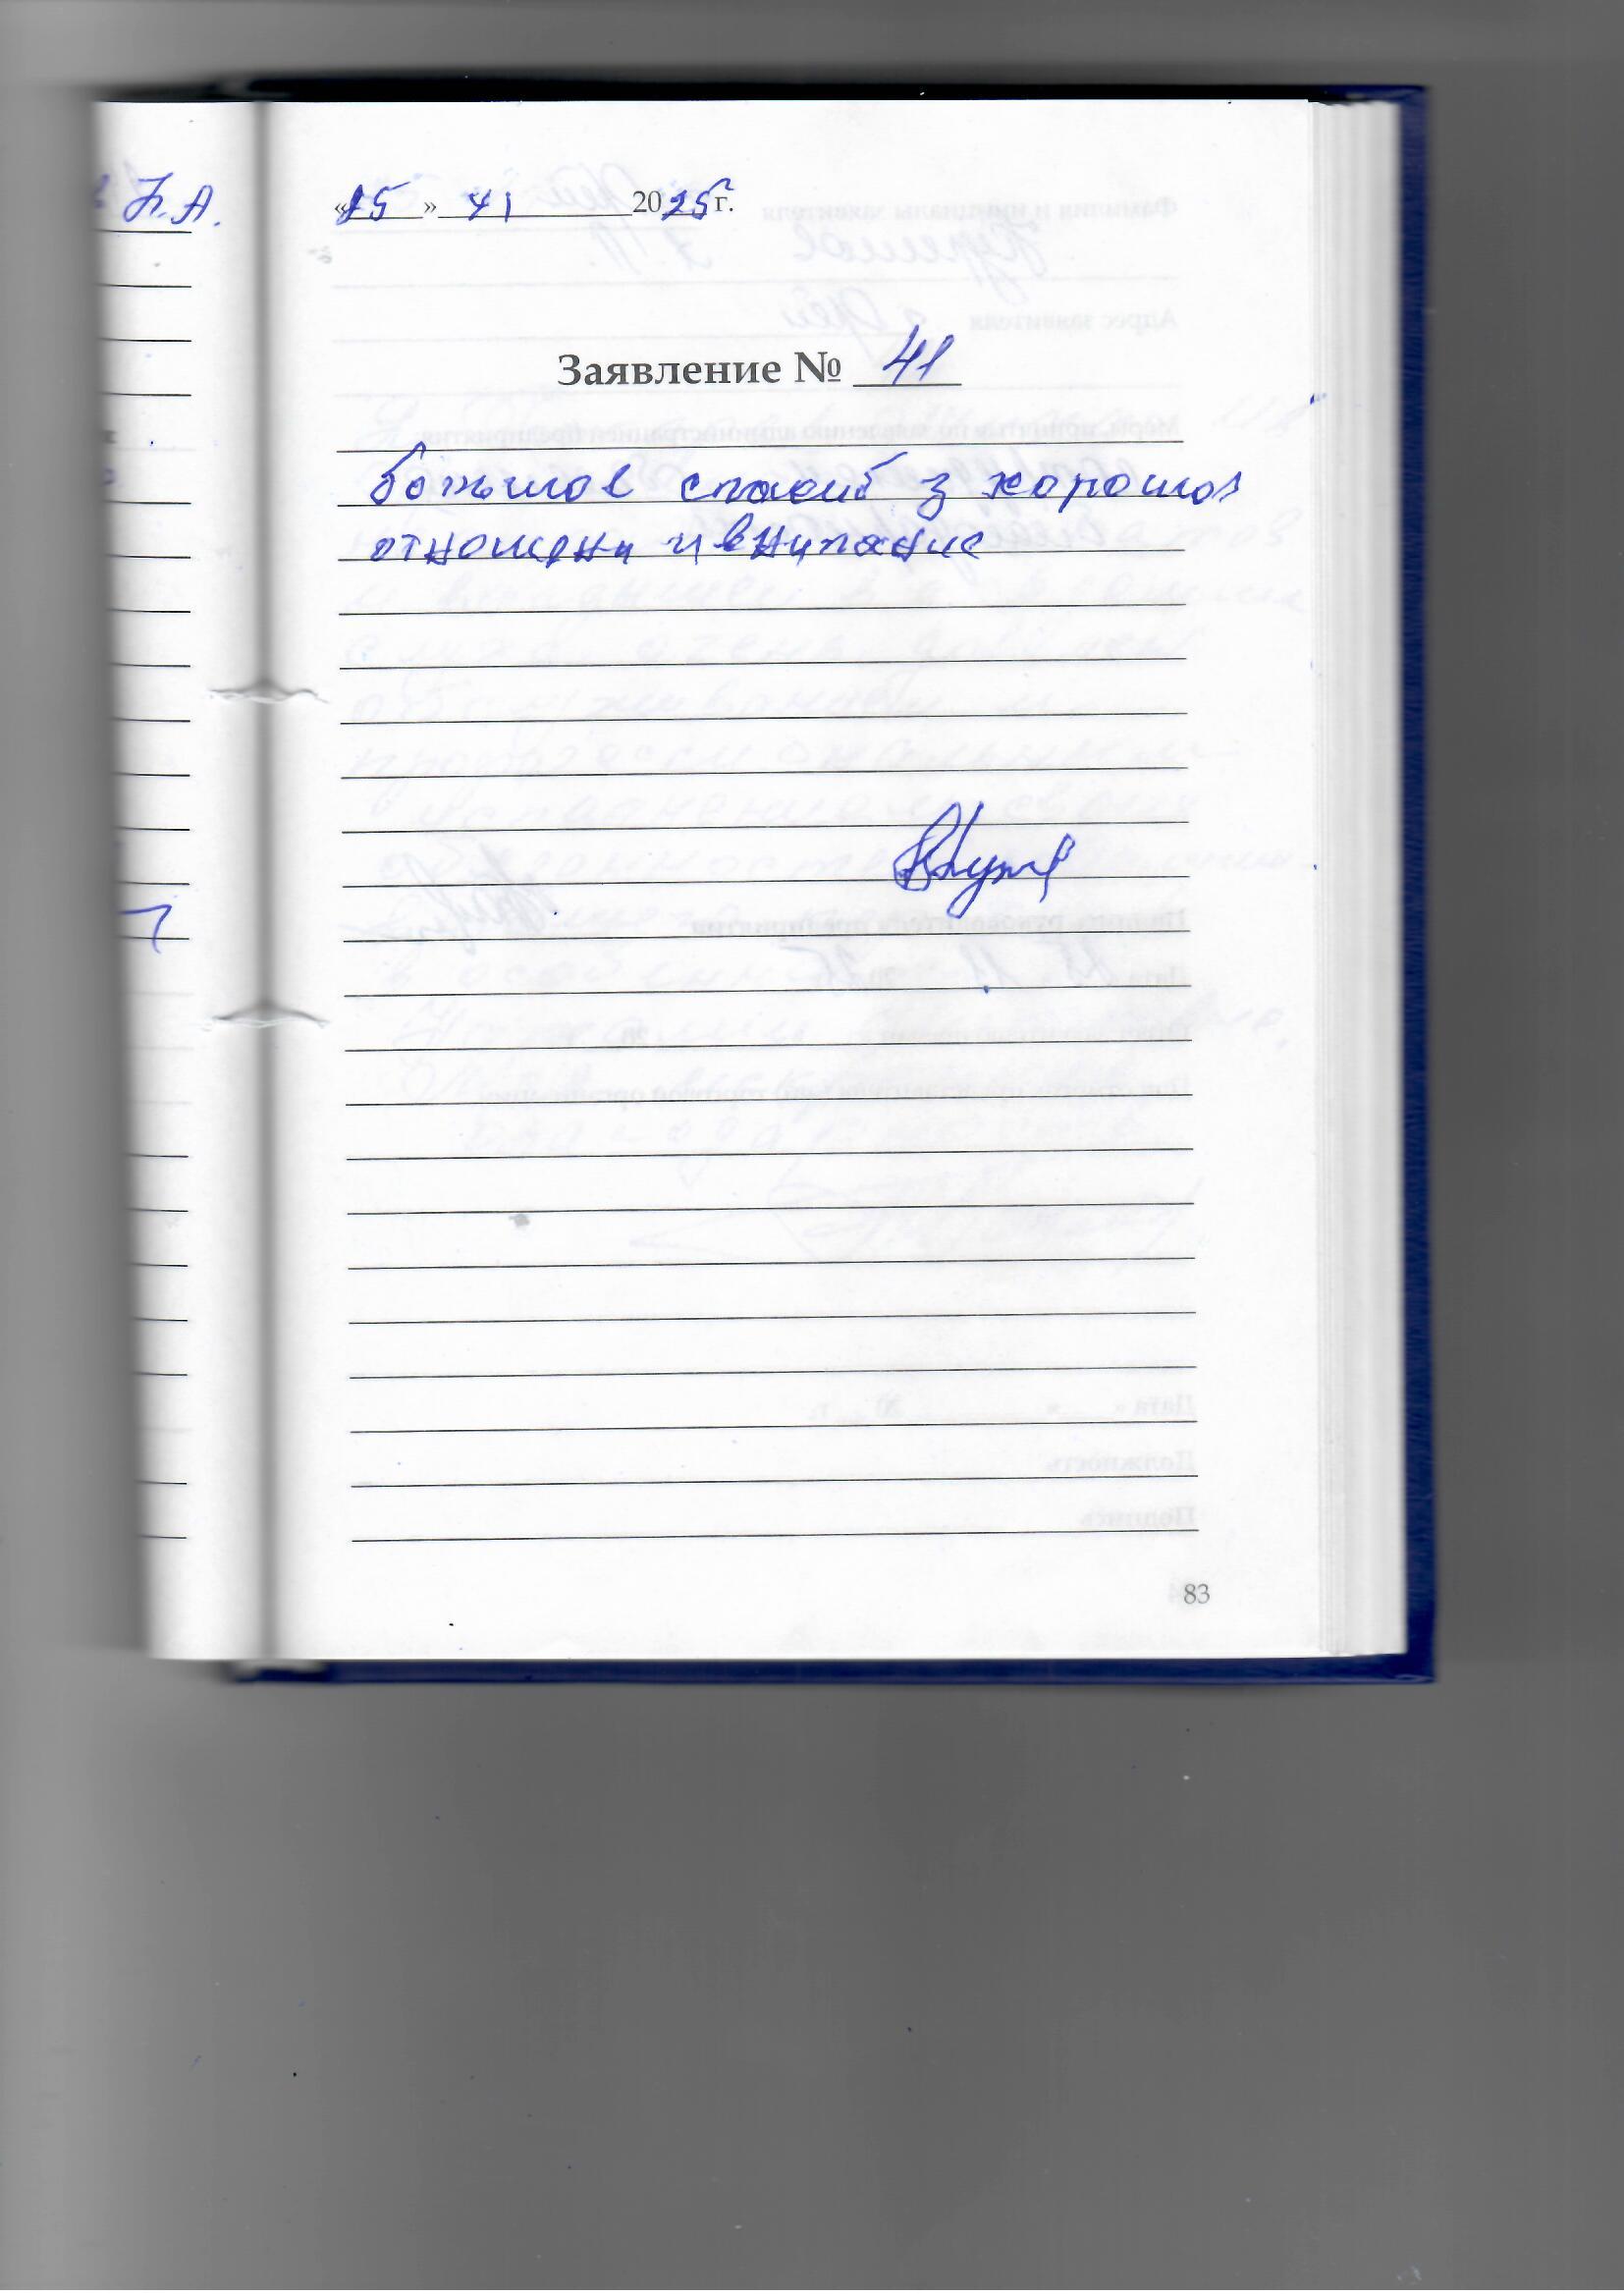 К.А.
«25» 11 2025 г.
Заявление № 41
большое спасиб з хорошое
отношени и внимание
83